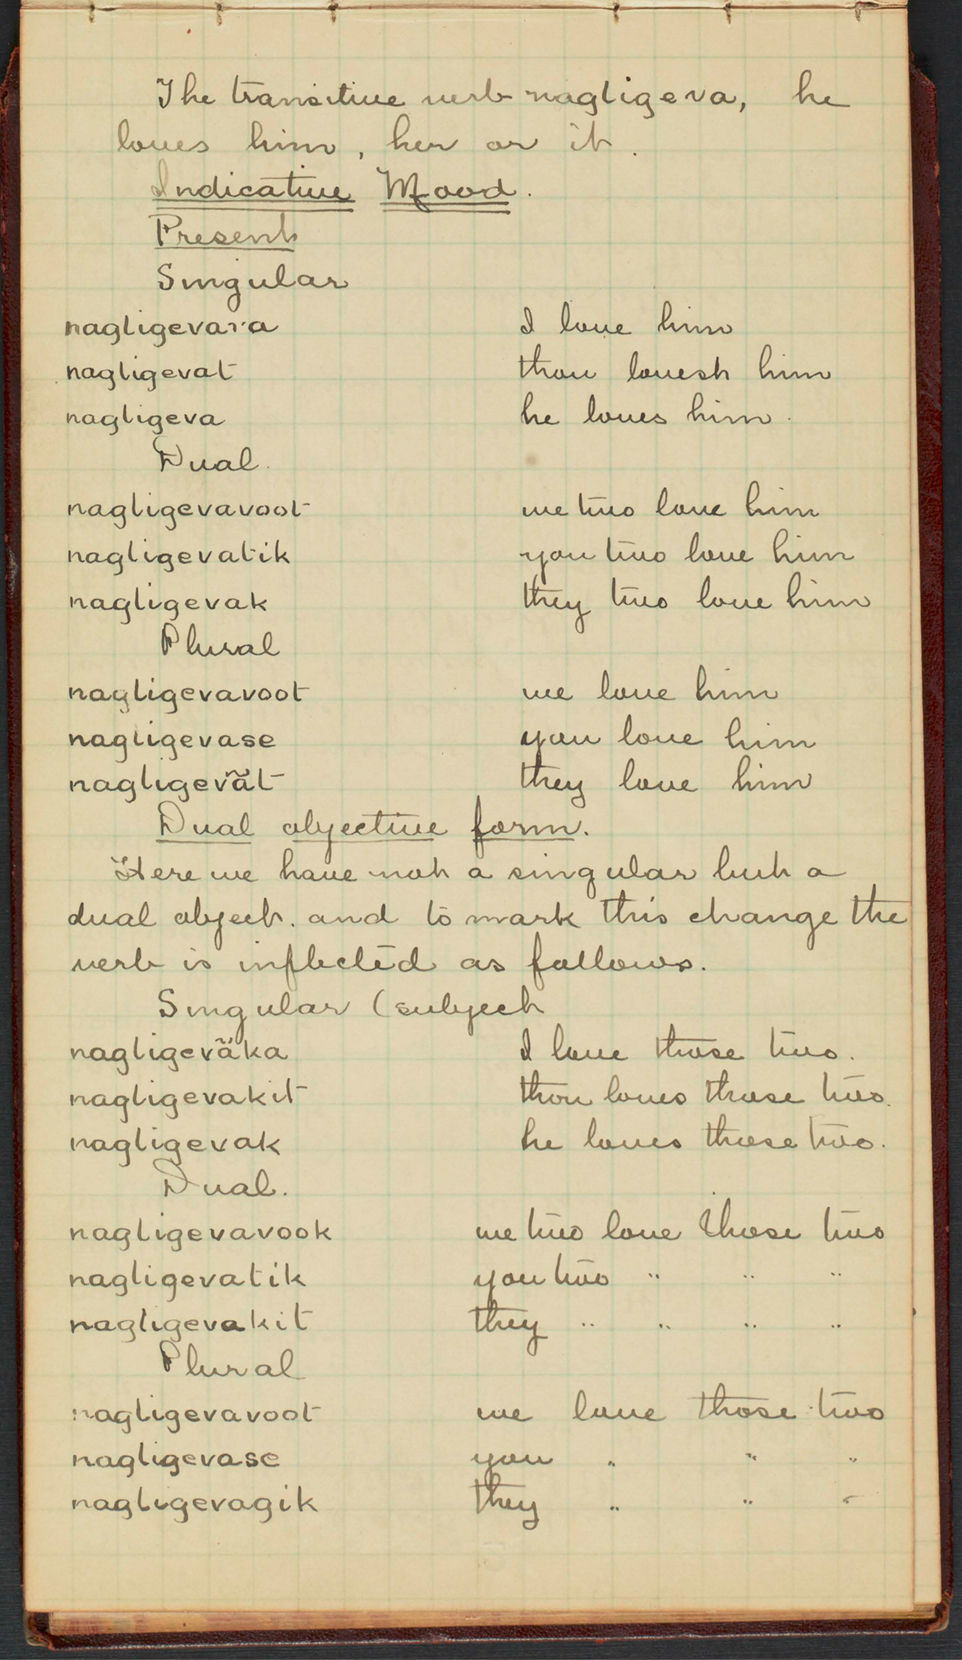 The transitive verb nagligeva, he
loves him, her or it.
Indicative Mood.
Present
Singular
nagligevara I love him
nagligevat thou lovest him
nagligeva he loves him.
Dual.
nagligevavoot we two love him
nagligevatik you two love him
nagligevak they two love him
Plural
nagligevavoot we love him
nagligevase you love him
nagligevät they love him
Dual objective form.
Here we have not a singular but a
dual object. and to mark this change the
verb is inflected as follows.
Singular (subject
nagligeväka I love those two.
nagligevakit thou loves those two.
nagligevak he loves those two.
Dual.
nagligevavook we two love those two
nagligevatik you two " " "
nagligevakit they " " " "
Plural
nagligevavoot we love those two
nagligevase you " " "
nagligevagik they " " "